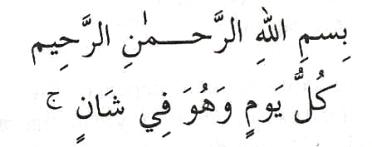 بِسمِ اللهِ الرَّحـــمٰنِ الرَّحِيم
كُلُّ يَومٍ وَهُوَ فِي شَانٍ ۚ